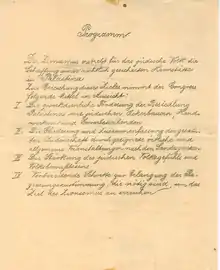 Programm
Der Zionismus erstrebt für das jüdische Volk die
Schaffung einer rechtlich gesicherten Heimstätte
in Palästina
Zur Erreichung dieses Zieles nimmt der Congress
folgende Mittel in Aussicht:
I Die zweckdienliche Förderung der Besiedlung
Palästinas mit jüdischen Ackerbauern, Hand-
werkern und Gewerbetreibenden
II Die und Zusammenfassung der gesamten
Judenschaft durch geeignete örtliche und
allgemeine Veranstaltungen nach den Landesgesetzen
III Die Stärkung des jüdischen Volksgefühls und
Volksbewusstseins
IV Vorbereitende Schritte zur Erlangung der Re-
gierungszustimmung, die nötig sind, um das
Ziel des Zionismus zu erreichen